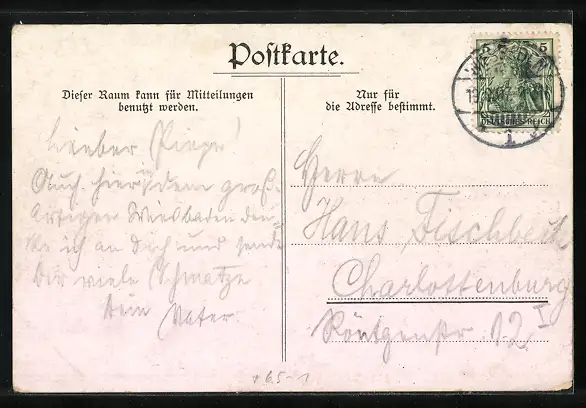 Postkarte.
Dieser Raum kann für Mitteilungen
benutzt werden.
Nur für
die Adresse bestimmt.
5
DEUTSCHES REICH
1
Lieber
Auch hier in dem groß-
artigen Wiesbaden den-
ke ich an Dich und sende
Dir viele Schmatze
Dein Vater.
Herrn
Hans Fischbeck
Charlottenburg
Röntgenstr. 12 I